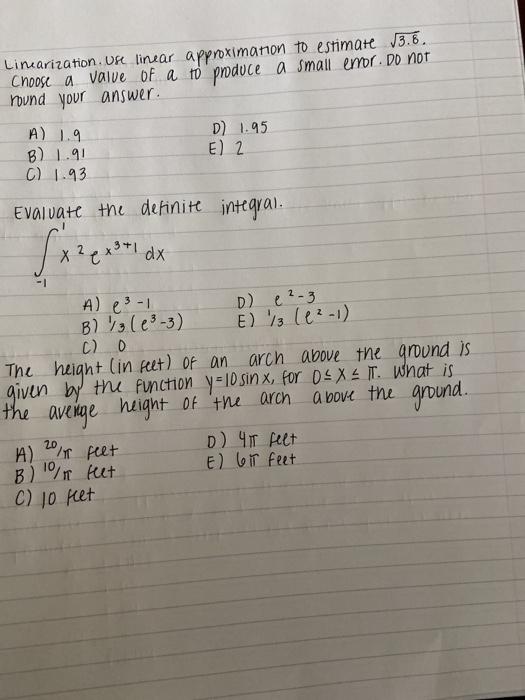 Linearization. Use linear approximation to estimate √3.8.
Choose a value of a to produce a small error. Do not
round your answer.
A) 1.9
D) 1.95
B) 1.91
E) 2
C) 1.93
Evaluate the definite integral.
∫₋₁¹ x² e^(x³+1) dx
A) e³-1
D) e²-3
B) 1/3(e³-3)
E) 1/3(e²-1)
C) 0
The height (in feet) of an arch above the ground is
given by the function y=10 sin x, for 0≤x≤π. What is
the average height of the arch above the ground.
A) 20/π feet
D) 4π feet
B) 10/π feet
E) 6π feet
C) 10 feet